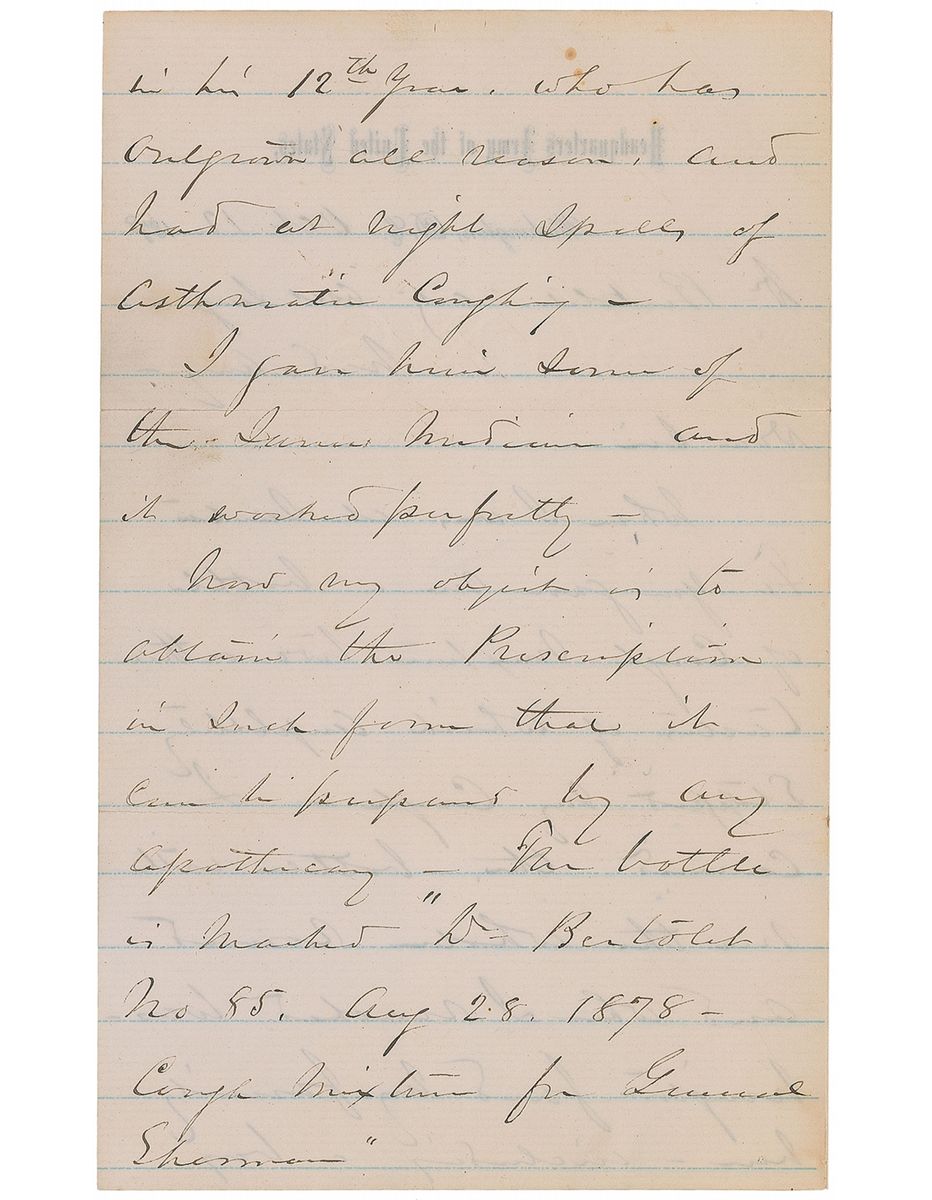 in his 12th Year. who has
outgrown all reason, and
had at night Spells of
Asthmatic Coughing -
I gave him some of
the same Medicine and
it worked perfectly -
Now my object is to
obtain the Prescription
in such form that it
can be prepared by any
apothecary - The bottle
is Marked "Dr Bertolet
No 85. Aug 28. 1878 -
Cough Mixture for General
Sherman"
Headquarters Army of the United States,